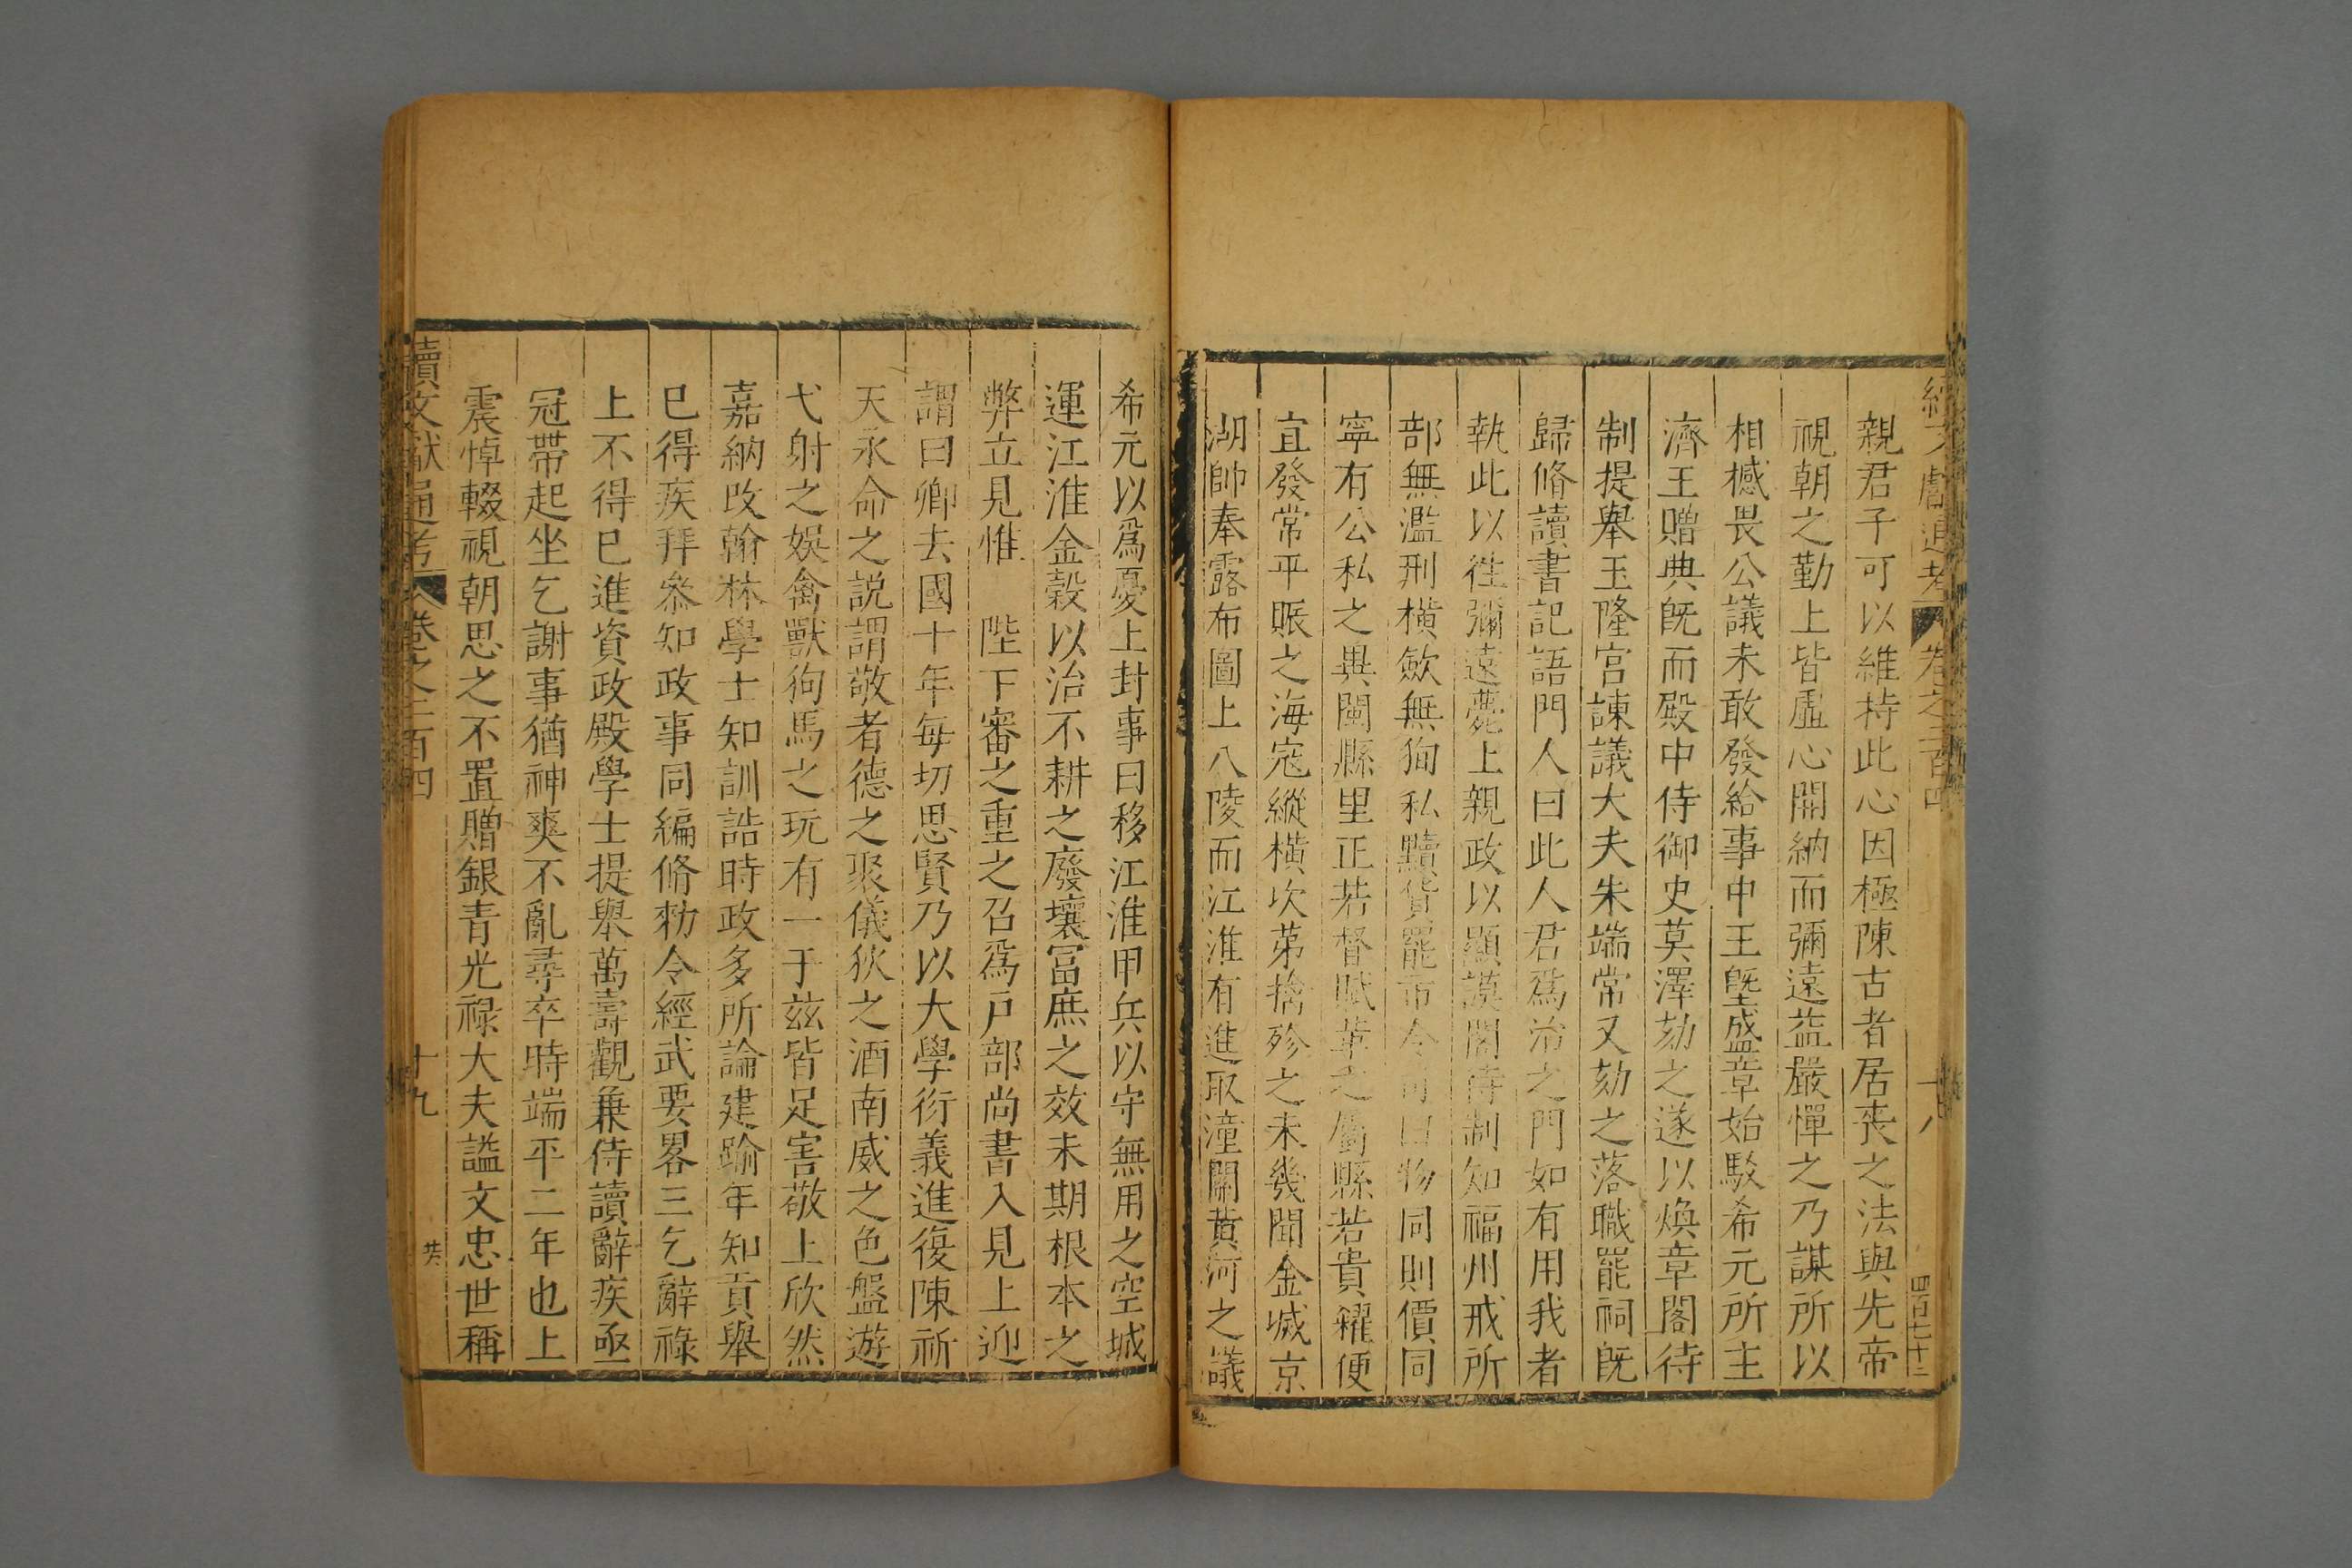 續文獻通考 卷之二百四 十八 四百七十二
親君子可以維持此心因極陳古者居喪之法與先帝
視朝之勤上皆虛心開納而彌遠益嚴憚之乃謀所以
相撼畏公議未敢發給事中王塈盛章始駁希元所主
濟王贈典旣而殿中侍御史莫澤劾之遂以煥章閣待
制提舉玉隆宮諫議大夫朱端常又劾之落職罷祠旣
歸脩讀書記語門人曰此人君爲治之門如有用我者
執此以徃彌遠薨上親政以顯謨閣待制知福州戒所
部無濫刑橫斂無狥私黷貨罷市令司曰物同則價同
寧有公私之異閩縣里正苦督賦革之屬縣苦貴糴便
宜發常平賑之海寇縱橫次第擒殄之未幾聞金滅京
湖帥奉露布圖上八陵而江淮有進取潼關黃河之議
希元以爲憂上封事曰移江淮甲兵以守無用之空城
運江淮金穀以治不耕之廢壤富庶之效未期根本之
弊立見惟 陛下審之重之召爲戶部尚書入見上迎
謂曰卿去國十年每切思賢乃以大學衍義進復陳祈
天永命之說謂敬者德之聚儀狄之酒南威之色盤遊
弋射之娛禽獸狗馬之玩有一于兹皆足害敬上欣然
嘉納改翰林學士知訓誥時政多所論建踰年知貢舉
巳得疾拜叅知政事同編脩勑令經武要畧三乞辭祿
上不得巳進資政殿學士提舉萬壽觀兼侍讀辭疾亟
冠帶起坐乞謝事猶神爽不亂尋卒時端平二年也上
震悼輟視朝思之不置贈銀青光祿大夫謚文忠世稱
續文獻通考 卷之二百四 十九